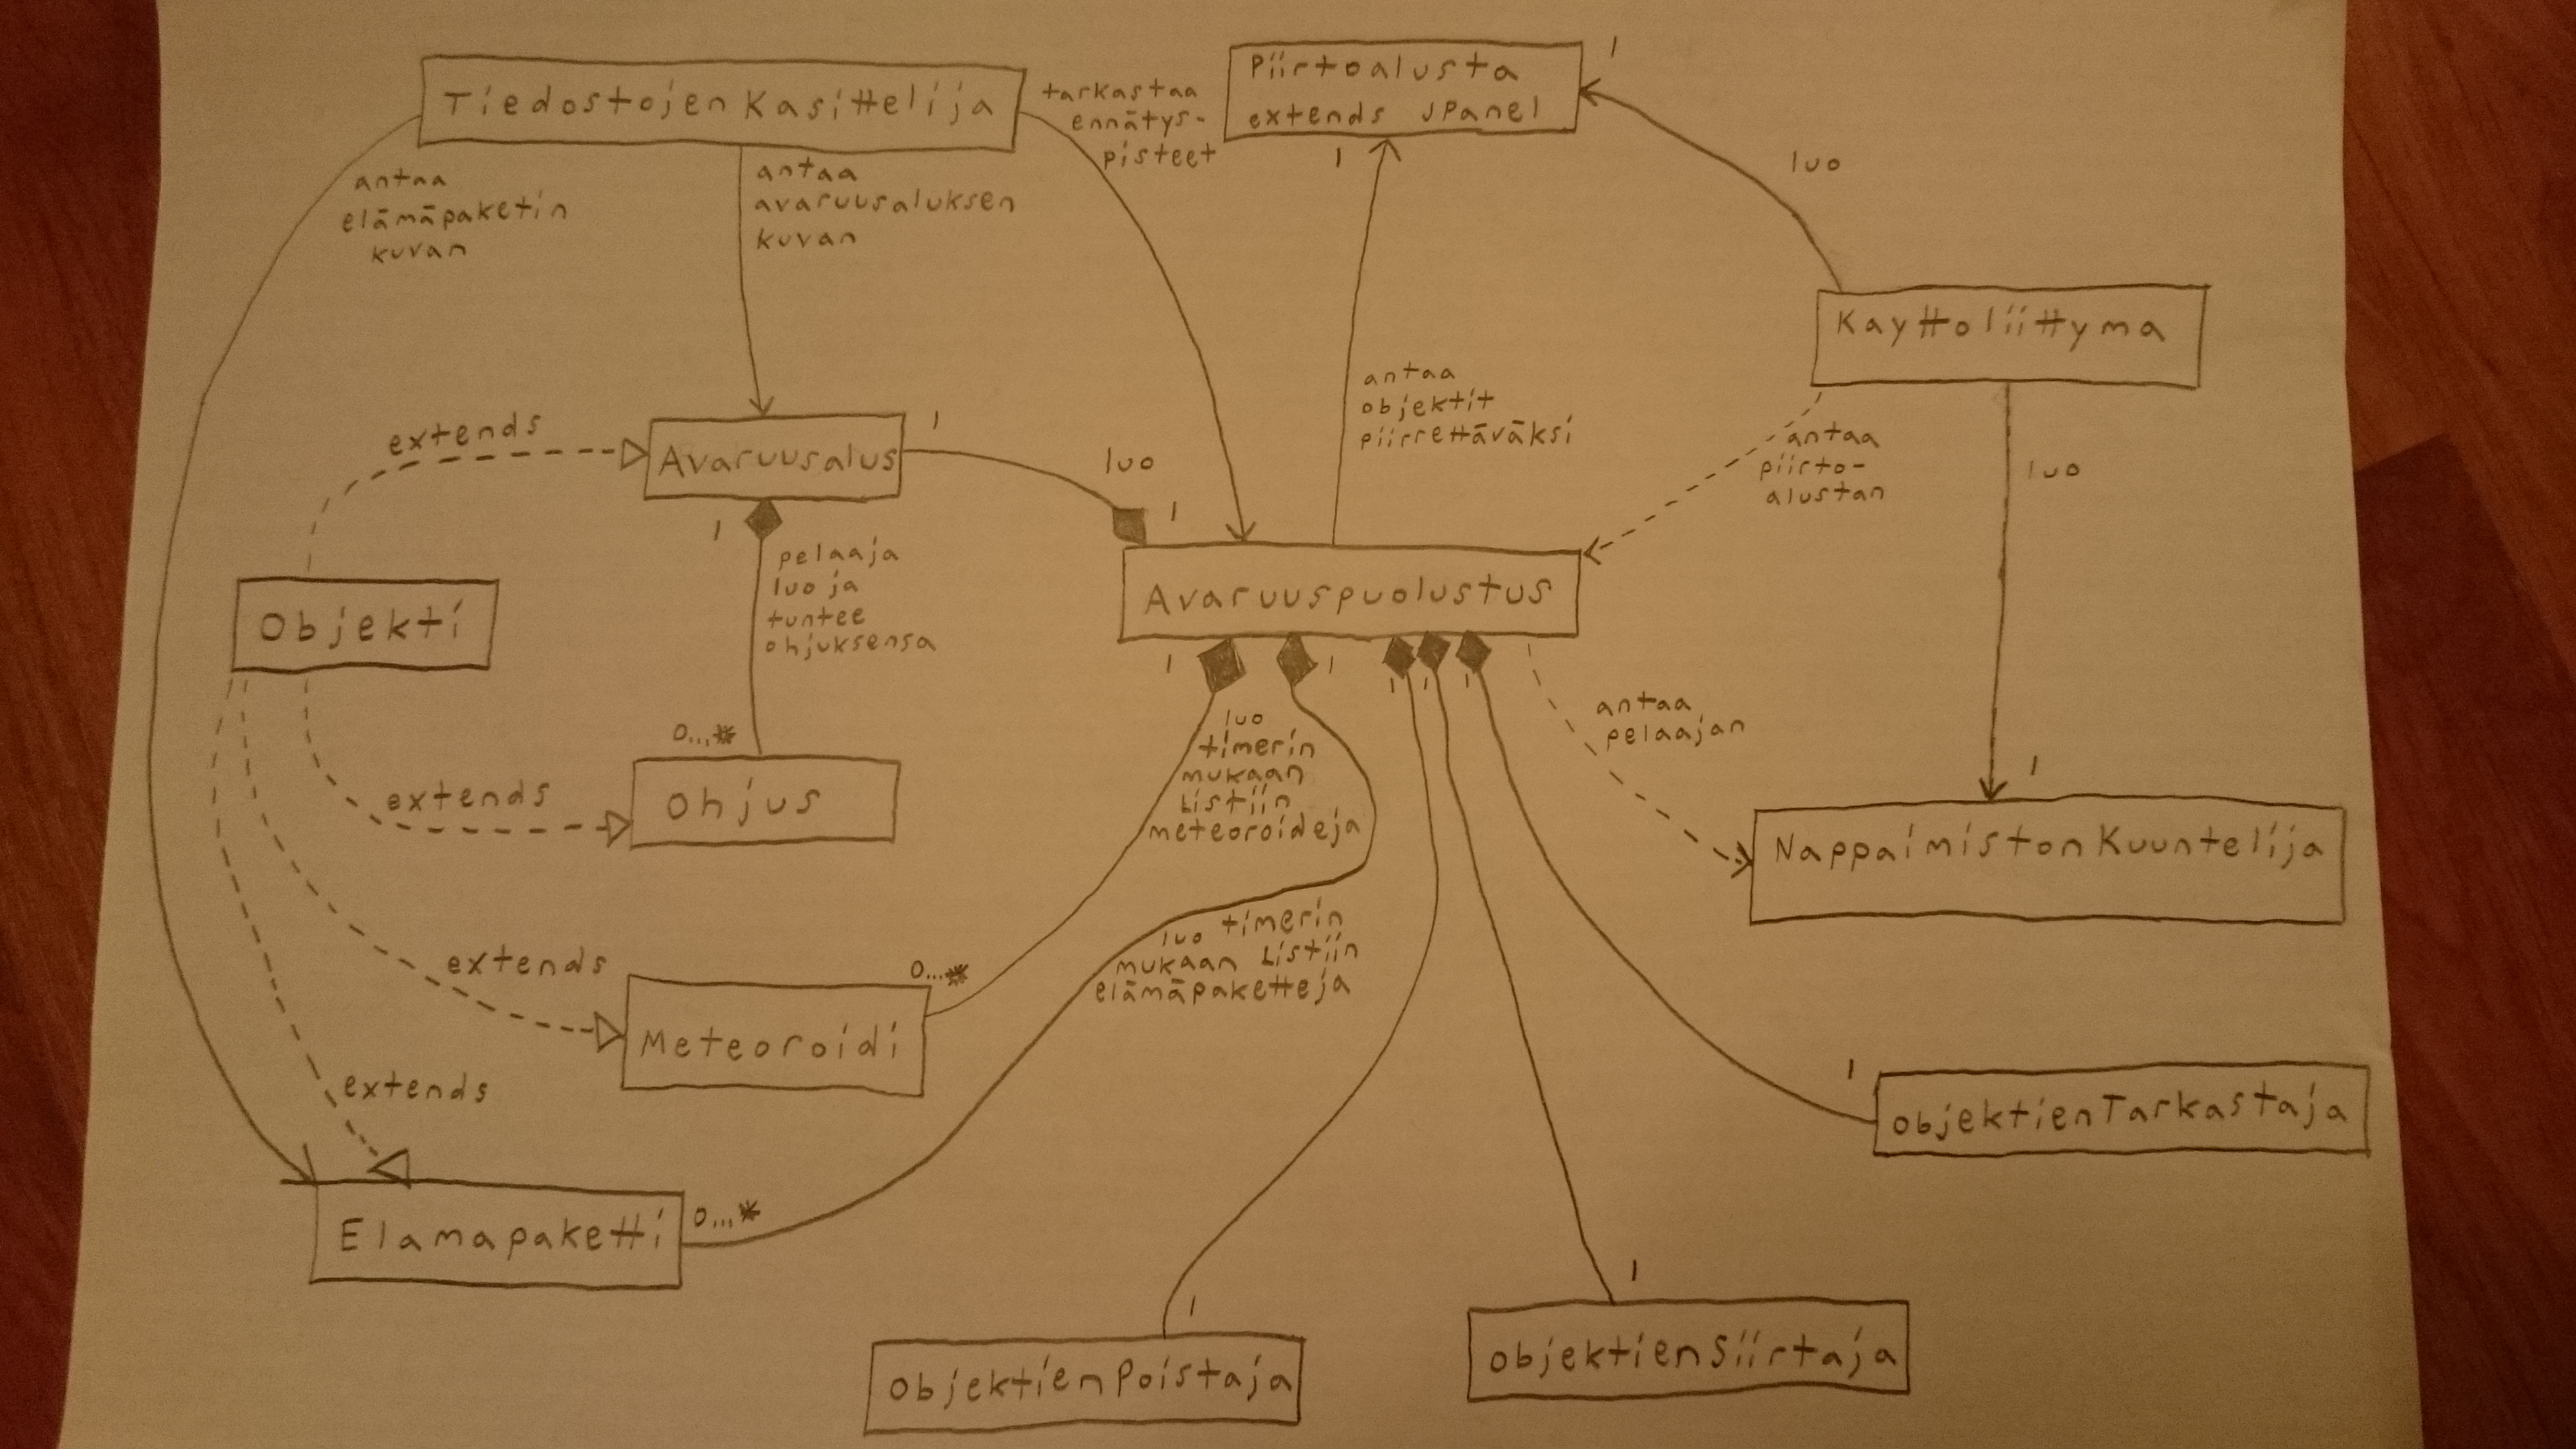 TiedostojenKasittelija
tarkastaa
ennätys-
pisteet
Piirtoalusta
extends JPanel
1
1
antaa
elämäpaketin
kuvan
antaa
avaruusaluksen
kuvan
luo
Kayttoliittyma
antaa
objektit
piirrettäväksi
antaa
piirto-
alustan
luo
extends
Avaruusalus
1
luo
1
1
pelaaja
luo ja
tuntee
ohjuksensa
Objekti
Avaruuspuolustus
1
1
1
1
1
luo
timerin
mukaan
Listiin
meteoroideja
antaa
pelaajan
0...*
extends
Ohjus
1
NappaimistonKuuntelija
luo timerin
mukaan Listiin
elämäpaketteja
extends
0...*
Meteoroidi
extends
1
ObjektienTarkastaja
Elamapaketti
0...*
1
ObjektienPoistaja
1
ObjektienSiirtaja